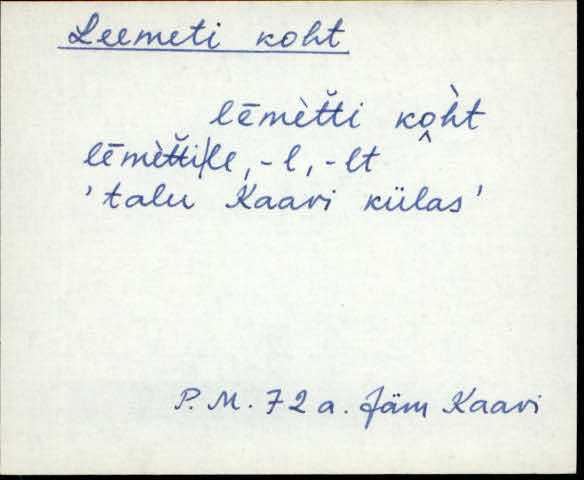 Leemeti koht
lēmèt̆ti ko̭h̀t
lēmèt̆ti/le, -l, -lt
'talu Kaavi külas'
P. M. 72 a. Jäm Kaavi